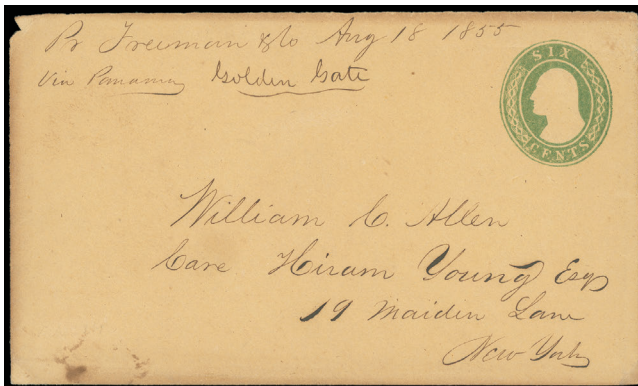 Pr Freeman & Co Aug 18 1855
Via Panama Golden Gate
SIX
CENTS
William C. Allen
Care Hiram Young Esq
19 Maiden Lane
New York